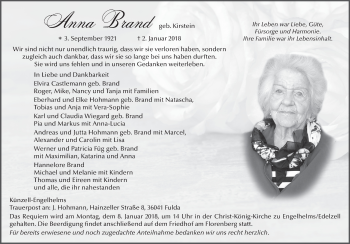 Anna Brand geb. Kirstein
* 3. September 1921 † 2. Januar 2018
Ihr Leben war Liebe, Güte,
Fürsorge und Harmonie.
Ihre Familie war ihr Lebensinhalt.
Wir sind nicht nur unendlich traurig, dass wir sie verloren haben, sondern
zugleich auch dankbar, dass wir sie so lange bei uns haben durften.
Sie lebt in uns und unseren Gedanken weiter.
In Liebe und Dankbarkeit
Elvira Castlemann geb. Brand
Roger, Mike, Nancy und Tanja mit Familien
Eberhard und Elke Hohmann geb. Brand mit Natascha,
Tobias und Anja mit Vera-Sophie
Karl und Claudia Wiegard geb. Brand
Pia und Markus mit Anna-Lucia
Andreas und Jutta Hohmann geb. Brand mit Marcel,
Alexander und Carolin mit Lisa
Werner und Patricia Füg geb. Brand
mit Maximilian, Katarina und Anna
Hannelore Brand
Michael und Melanie mit Kindern
Thomas und Eireen mit Kindern
und alle, die ihr nahestanden
Künzell-Engelhelms
Trauerpost an: J. Hohmann, Hainzeller Straße 8, 36041 Fulda
Das Requiem wird am Montag, dem 8. Januar 2018, um 14 Uhr in der Christ-König-Kirche zu Engelhelms/Edelzell
gehalten. Die Beerdigung findet anschließend auf dem Friedhof am Florenberg statt.
Für erwiesene und noch zugedachte Anteilnahme bedanken wir uns.